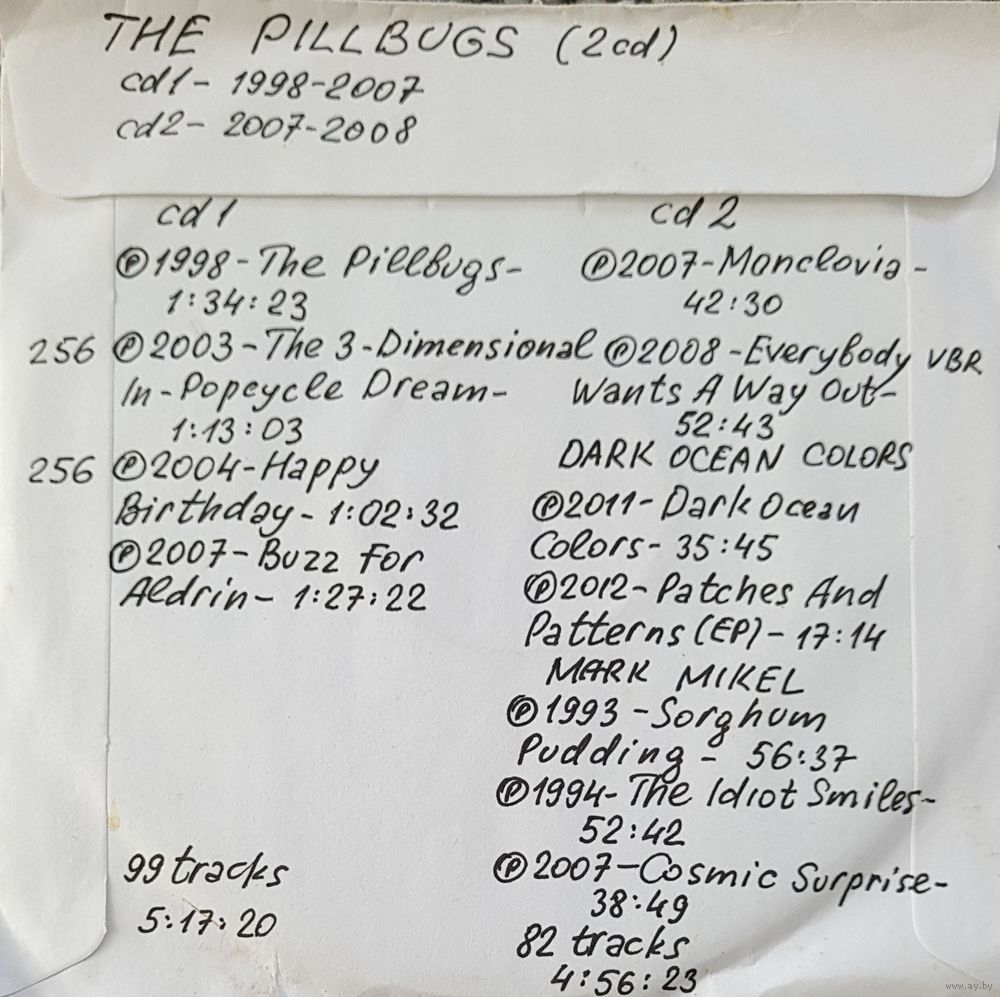 THE PILLBUGS (2cd)
cd1- 1998-2007
cd2- 2007-2008
cd 1
℗1998-The Pillbugs-
1:34:23
256 ℗2003-The 3-Dimensional
In-Popcycle Dream-
1:13:03
256 ℗2004-Happy
Birthday-1:02:32
℗2007-Buzz For
Aldrin- 1:27:22
99 tracks
5:17:20
cd 2
℗2007-Monclovia-
42:30
℗2008-Everybody VBR
Wants A Way Out-
52:43
DARK OCEAN COLORS
℗2011-Dark Ocean
Colors-35:45
℗2012-Patches And
Patterns (EP)-17:14
MARK MIKEL
℗1993-Sorghum
Pudding- 56:37
℗1994-The Idiot Smiles-
52:42
℗2007-Cosmic Surprise-
38:49
82 tracks
4:56:23
www.ay.by